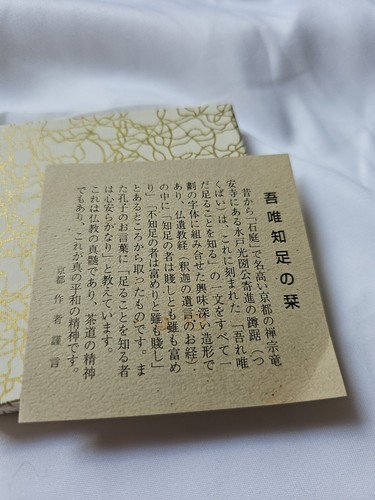 吾唯知足の栞
昔から「石庭」で名高い京都の禅宗竜
安寺にある水戸光圀公寄進の蹲踞（つ
くばい）は、これに刻まれた「吾れ唯
だ足ることを知る」の一文をすべて一
劃の字体に組み合せた興味深い造形で
あり、仏遺教経（釈迦の遺言のお経）
の中に「知足の者は賤しとも雖も富め
り」「不知足の者は富めりと雖も賤し」
とあるところから取ったものです。ま
た孔子のお言葉に「足ることを知る者
は心安らかなり」と教えています。
これは仏教の真髄であり、茶道の精神
でもあり、これが真の平和の精神です。
京都 作者 謹言